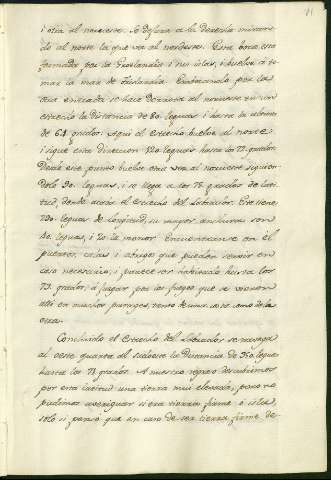 i otra al noroeste. Se dejara a la derecha mirando
al norte la que va al nordeste. Esta boca esta
formada por la Groelandia i sus islas, i buelve á to-
mar la mar de Frislandia. Embocando por la
otra entrada se hace derrota al noroeste en un
estrecho la distancia de 80. leguas i hasta la altura
de 64 grados. Aqui el estrecho buelve al norte
i sigue esta direccion 120 leguas hasta los 72. grados.
Desde este punto buelve otra vez al noroeste siguien-
dolo 90. leguas, i se llega a los 75 grados de lati-
tud, donde acaba el estrecho del Labrador. Este tiene
290. leguas de longitud, su mayor anchura son
40. leguas, i 20 la menor. Encuentranse en él
puertos, calas i abrigos que pueden servir en
caso necesario, i parece ser habitado hasta los
73. grados, á juzgar por los fuegos que se vieron
alli en muchos parages, tanto de una costa como de la
otra.
Concluido el Estrecho del Labrador se navega
al oeste quarta al sudoeste la distancia de 350 leguas
hasta los 71 grados. A nuestro regreso descubrimos
por esta latitud una tierra mui elevada, pero no
pudimos averiguar si era tierra firme ó isla,
solo si pensó que en caso de ser tierra firme de-